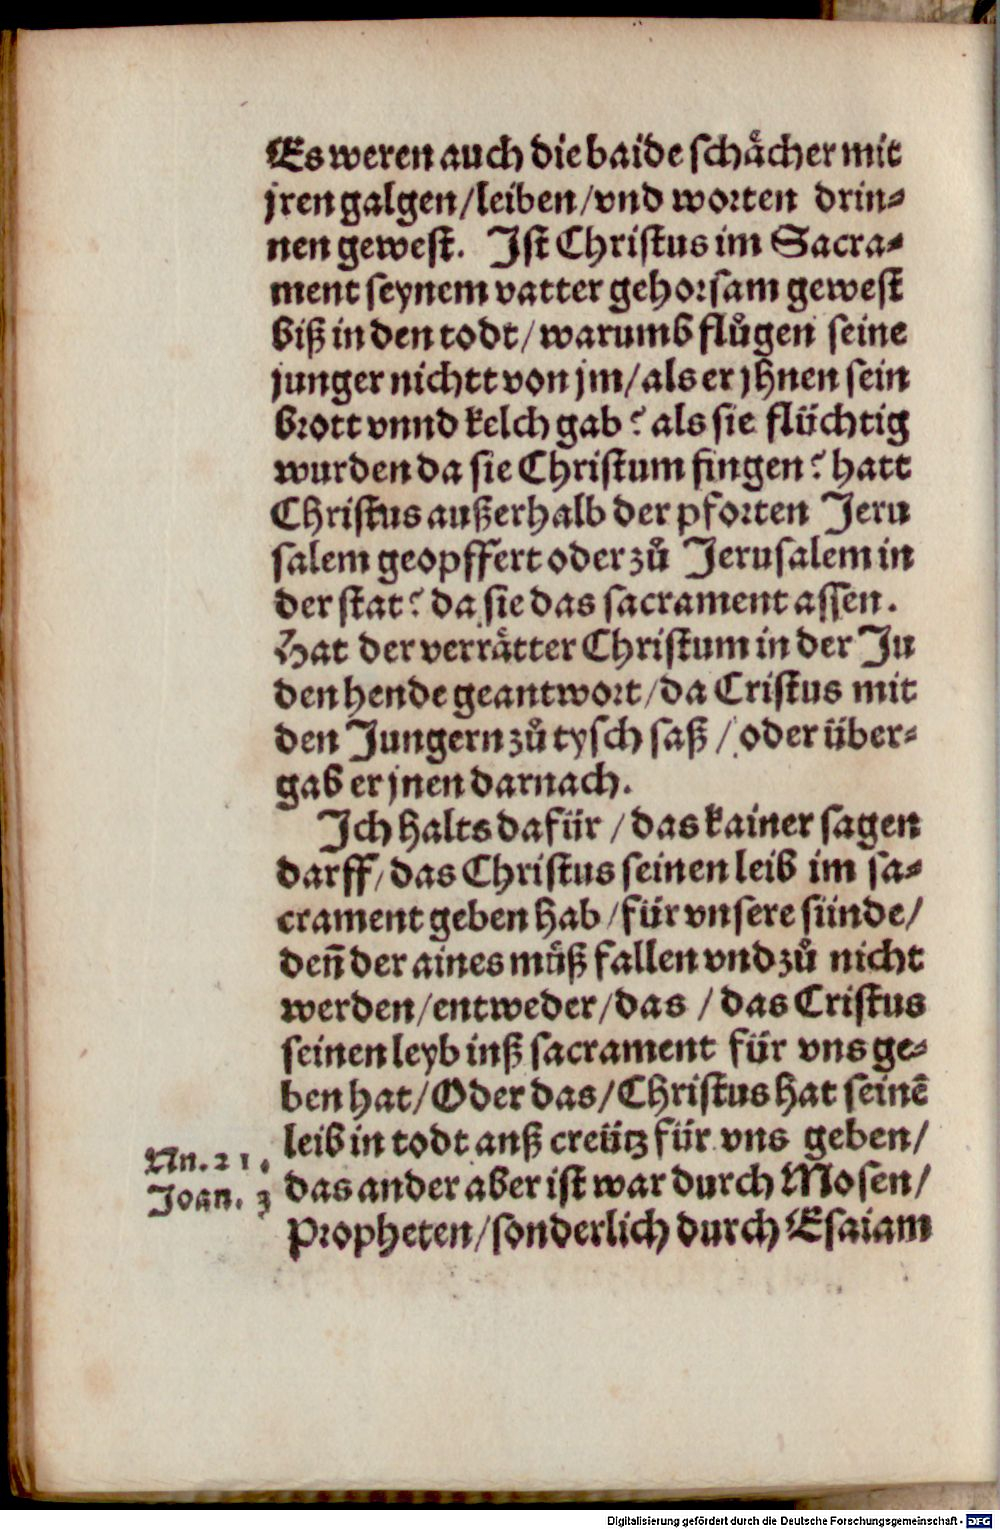 Es weren auch die baide schaͤcher mit
jren galgen/leiben/vnd worten drin⸗
nen gewest. Jst Christus im Sacra⸗
ment seynem vatter gehorsam gewest
biß in den todt/warumb fluͦgen seine
junger nichtt von jm/als er jhnen sein
brott vnnd kelch gab? als sie flüchtig
wurden da sie Christum fingen? hatt
Christus außerhalb der pforten Jeru
salem geopffert oder zuͦ Jerusalem in
der stat? da sie das sacrament assen.
Hat der verraͤtter Christum in der Ju
den hende geantwort/da Cristus mit
den Jungern zuͦ tysch saß / oder über⸗
gab er jnen darnach.
Jch halts dafür / das kainer sagen
darff/das Christus seinen leib im sa⸗
crament geben hab/für vnsere sünde/
deñ der aines muͦß fallen vnd zuͦ nicht
werden/entweder/das / das Cristus
seinen leyb inß sacrament für vns ge⸗
ben hat/Oder das/Christus hat seinē
leib in todt anß creütz für vns geben/
das ander aber ist war durch Mosen/
Propheten/sonderlich durch Esaiam
Nu. 21.
Joan. 3
Digitalisierung gefördert durch die Deutsche Forschungsgemeinschaft - DFG